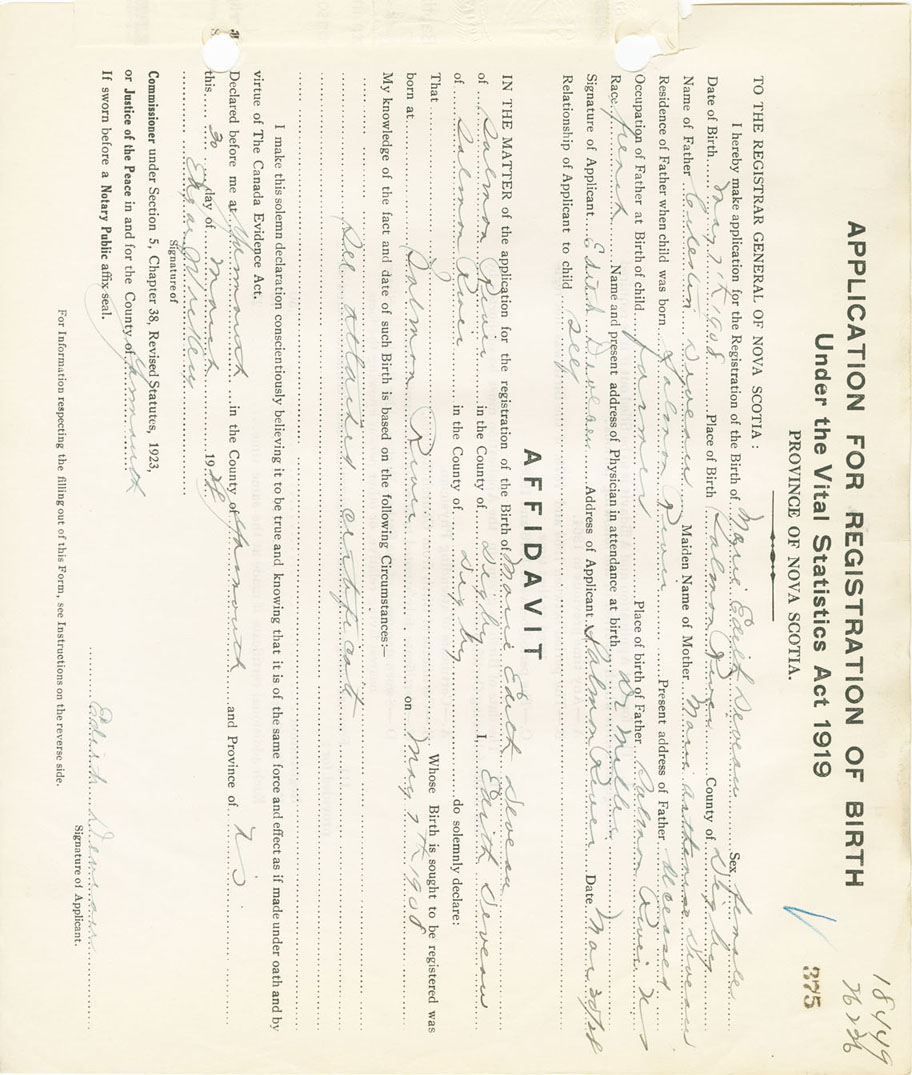 18449
375
APPLICATION FOR REGISTRATION OF BIRTH
Under the Vital Statistics Act 1919
PROVINCE OF NOVA SCOTIA.
TO THE REGISTRAR GENERAL OF NOVA SCOTIA:
I hereby make application for the Registration of the Birth of Marie Edith Deveau Sex female
Date of Birth May 7th 1908 Place of Birth Salmon River County of Digby
Name of Father Deveau Maiden Name of Mother Marie Deveau
Residence of Father when child was born Salmon River Present address of Father deceased
Occupation of Father at Birth of child farmer Place of birth of Father Salmon River N S
Race french Name and present address of Physician in attendance at birth Dr
Signature of Applicant Edith Deveau Address of Applicant Salmon River Date Mar 30
Relationship of Applicant to child Self
AFFIDAVIT
IN THE MATTER of the application for the registration of the Birth of Marie Edith Deveau
of Salmon River in the County of Digby I, Edith Deveau
of Salmon River in the County of Digby do solemnly declare:
That I Whose Birth is sought to be registered was
born at Salmon River on May 7th 1908
My knowledge of the fact and date of such Birth is based on the following Circumstances:—
See attached certificate
I make this solemn declaration conscientiously believing it to be true and knowing that it is of the same force and effect as if made under oath and by
virtue of The Canada Evidence Act.
Declared before me at Yarmouth in the County of Yarmouth and Province of N S
this 30 day of March 19
Signature of
Commissioner under Section 5, Chapter 38, Revised Statutes, 1923,
or Justice of the Peace in and for the County of Yarmouth
If sworn before a Notary Public affix seal.
Edith Deveau
Signature of Applicant.
For Information respecting the filling out of this Form, see Instructions on the reverse side.